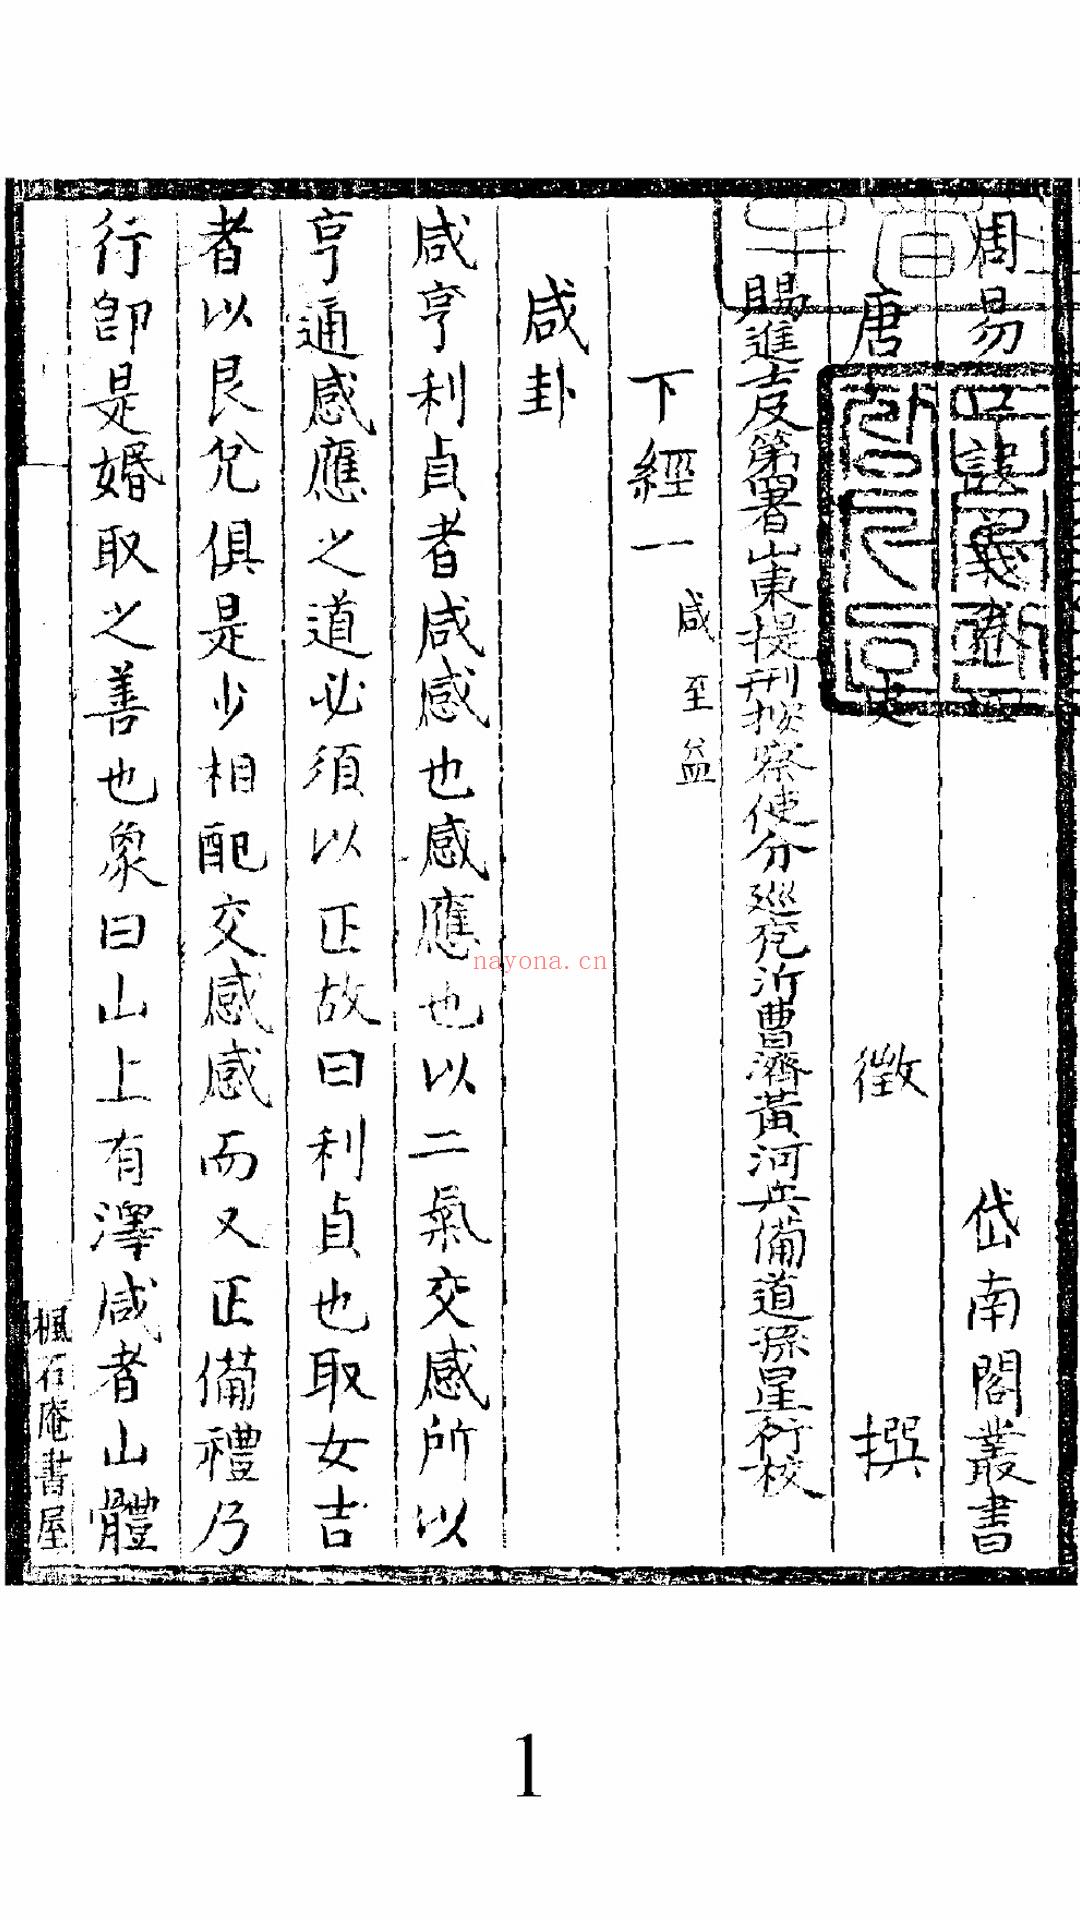 周易口訣義卷四 岱南閣叢書
唐 史 徵 撰
賜進士及第署山東提刑按察使分巡兗沂曹濟黃河兵備道孫星衍校
下經一 咸至益
咸卦
咸亨利貞者咸感也感應也以二氣交感所以
亨通感應之道必須以正故曰利貞也取女吉
者以艮兌俱是少相配交感感而又正備禮乃
行卽是婚取之善也象曰山上有澤咸者山體
楓石庵書屋
nayona.cn
1